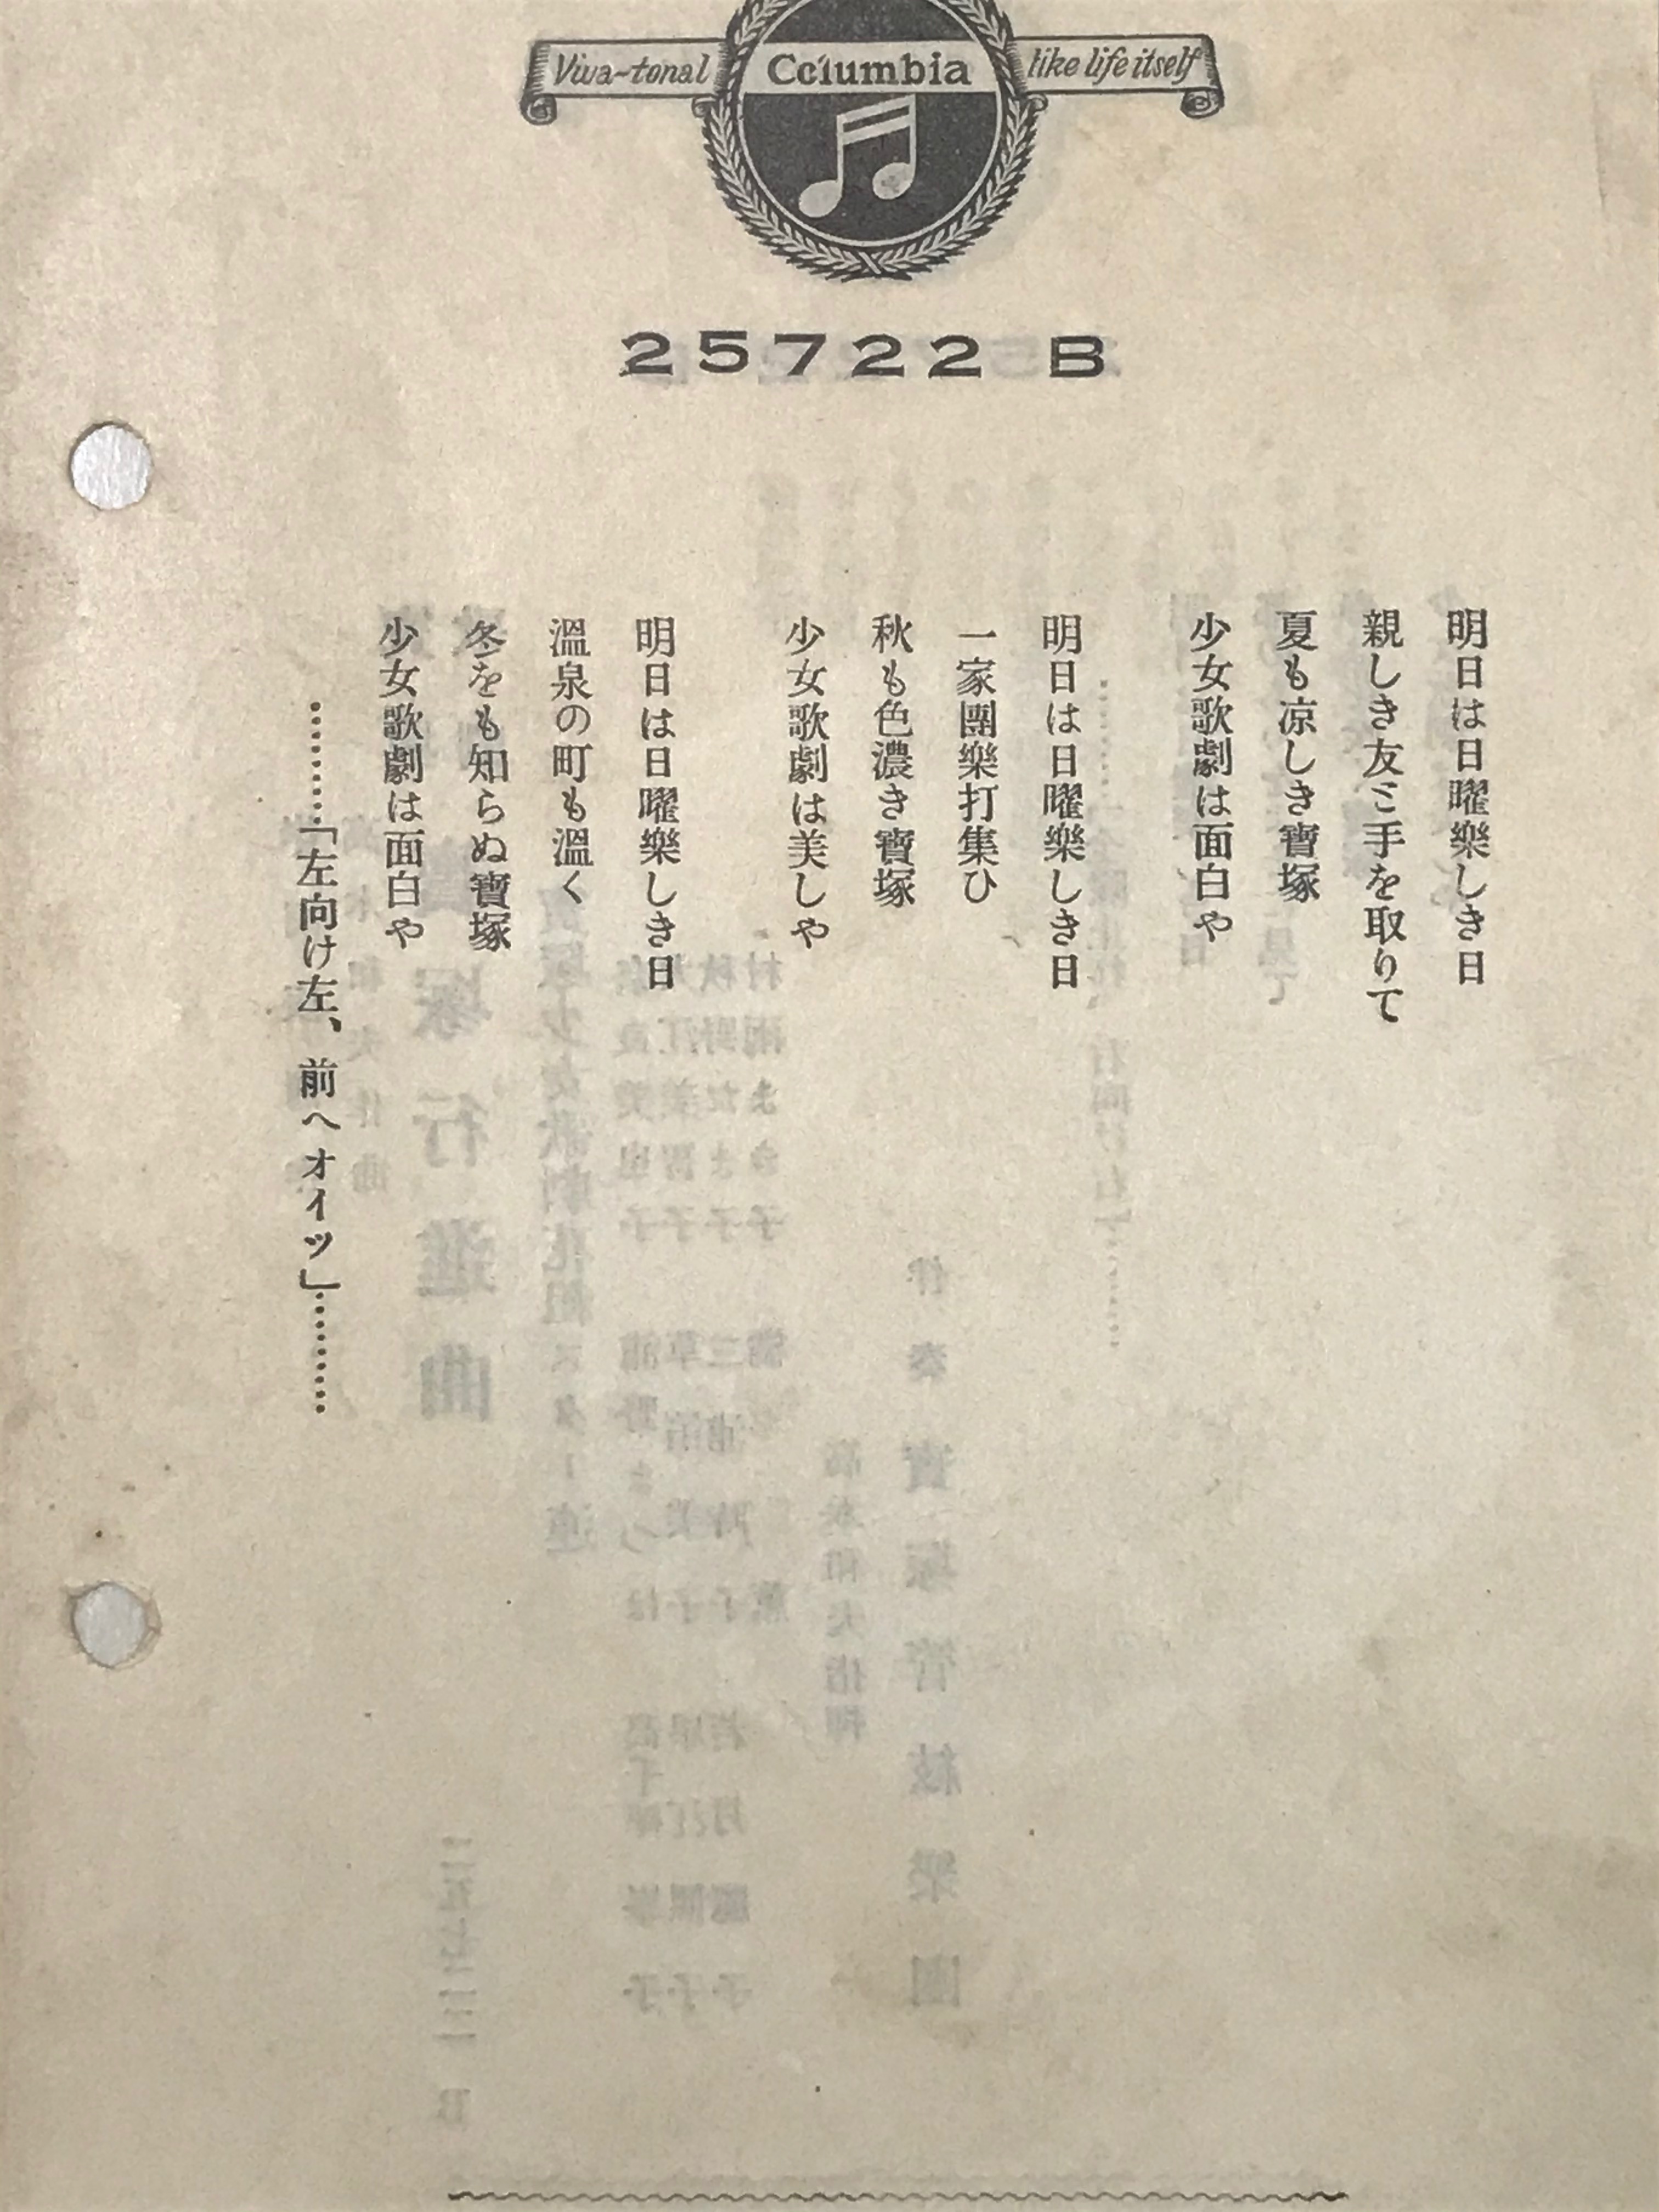 Viva-tonal Columbia like life itself
25722 B
明日は日曜樂しき日
親しき友と手を取りて
夏も凉しき寶塚
少女歌劇は面白や
明日は日曜樂しき日
一家團樂打集ひ
秋も色濃き寶塚
少女歌劇は美しや
明日は日曜樂しき日
溫泉の町も溫く
冬をも知らぬ寶塚
少女歌劇は面白や
………「左向け左、前へオイッ」………